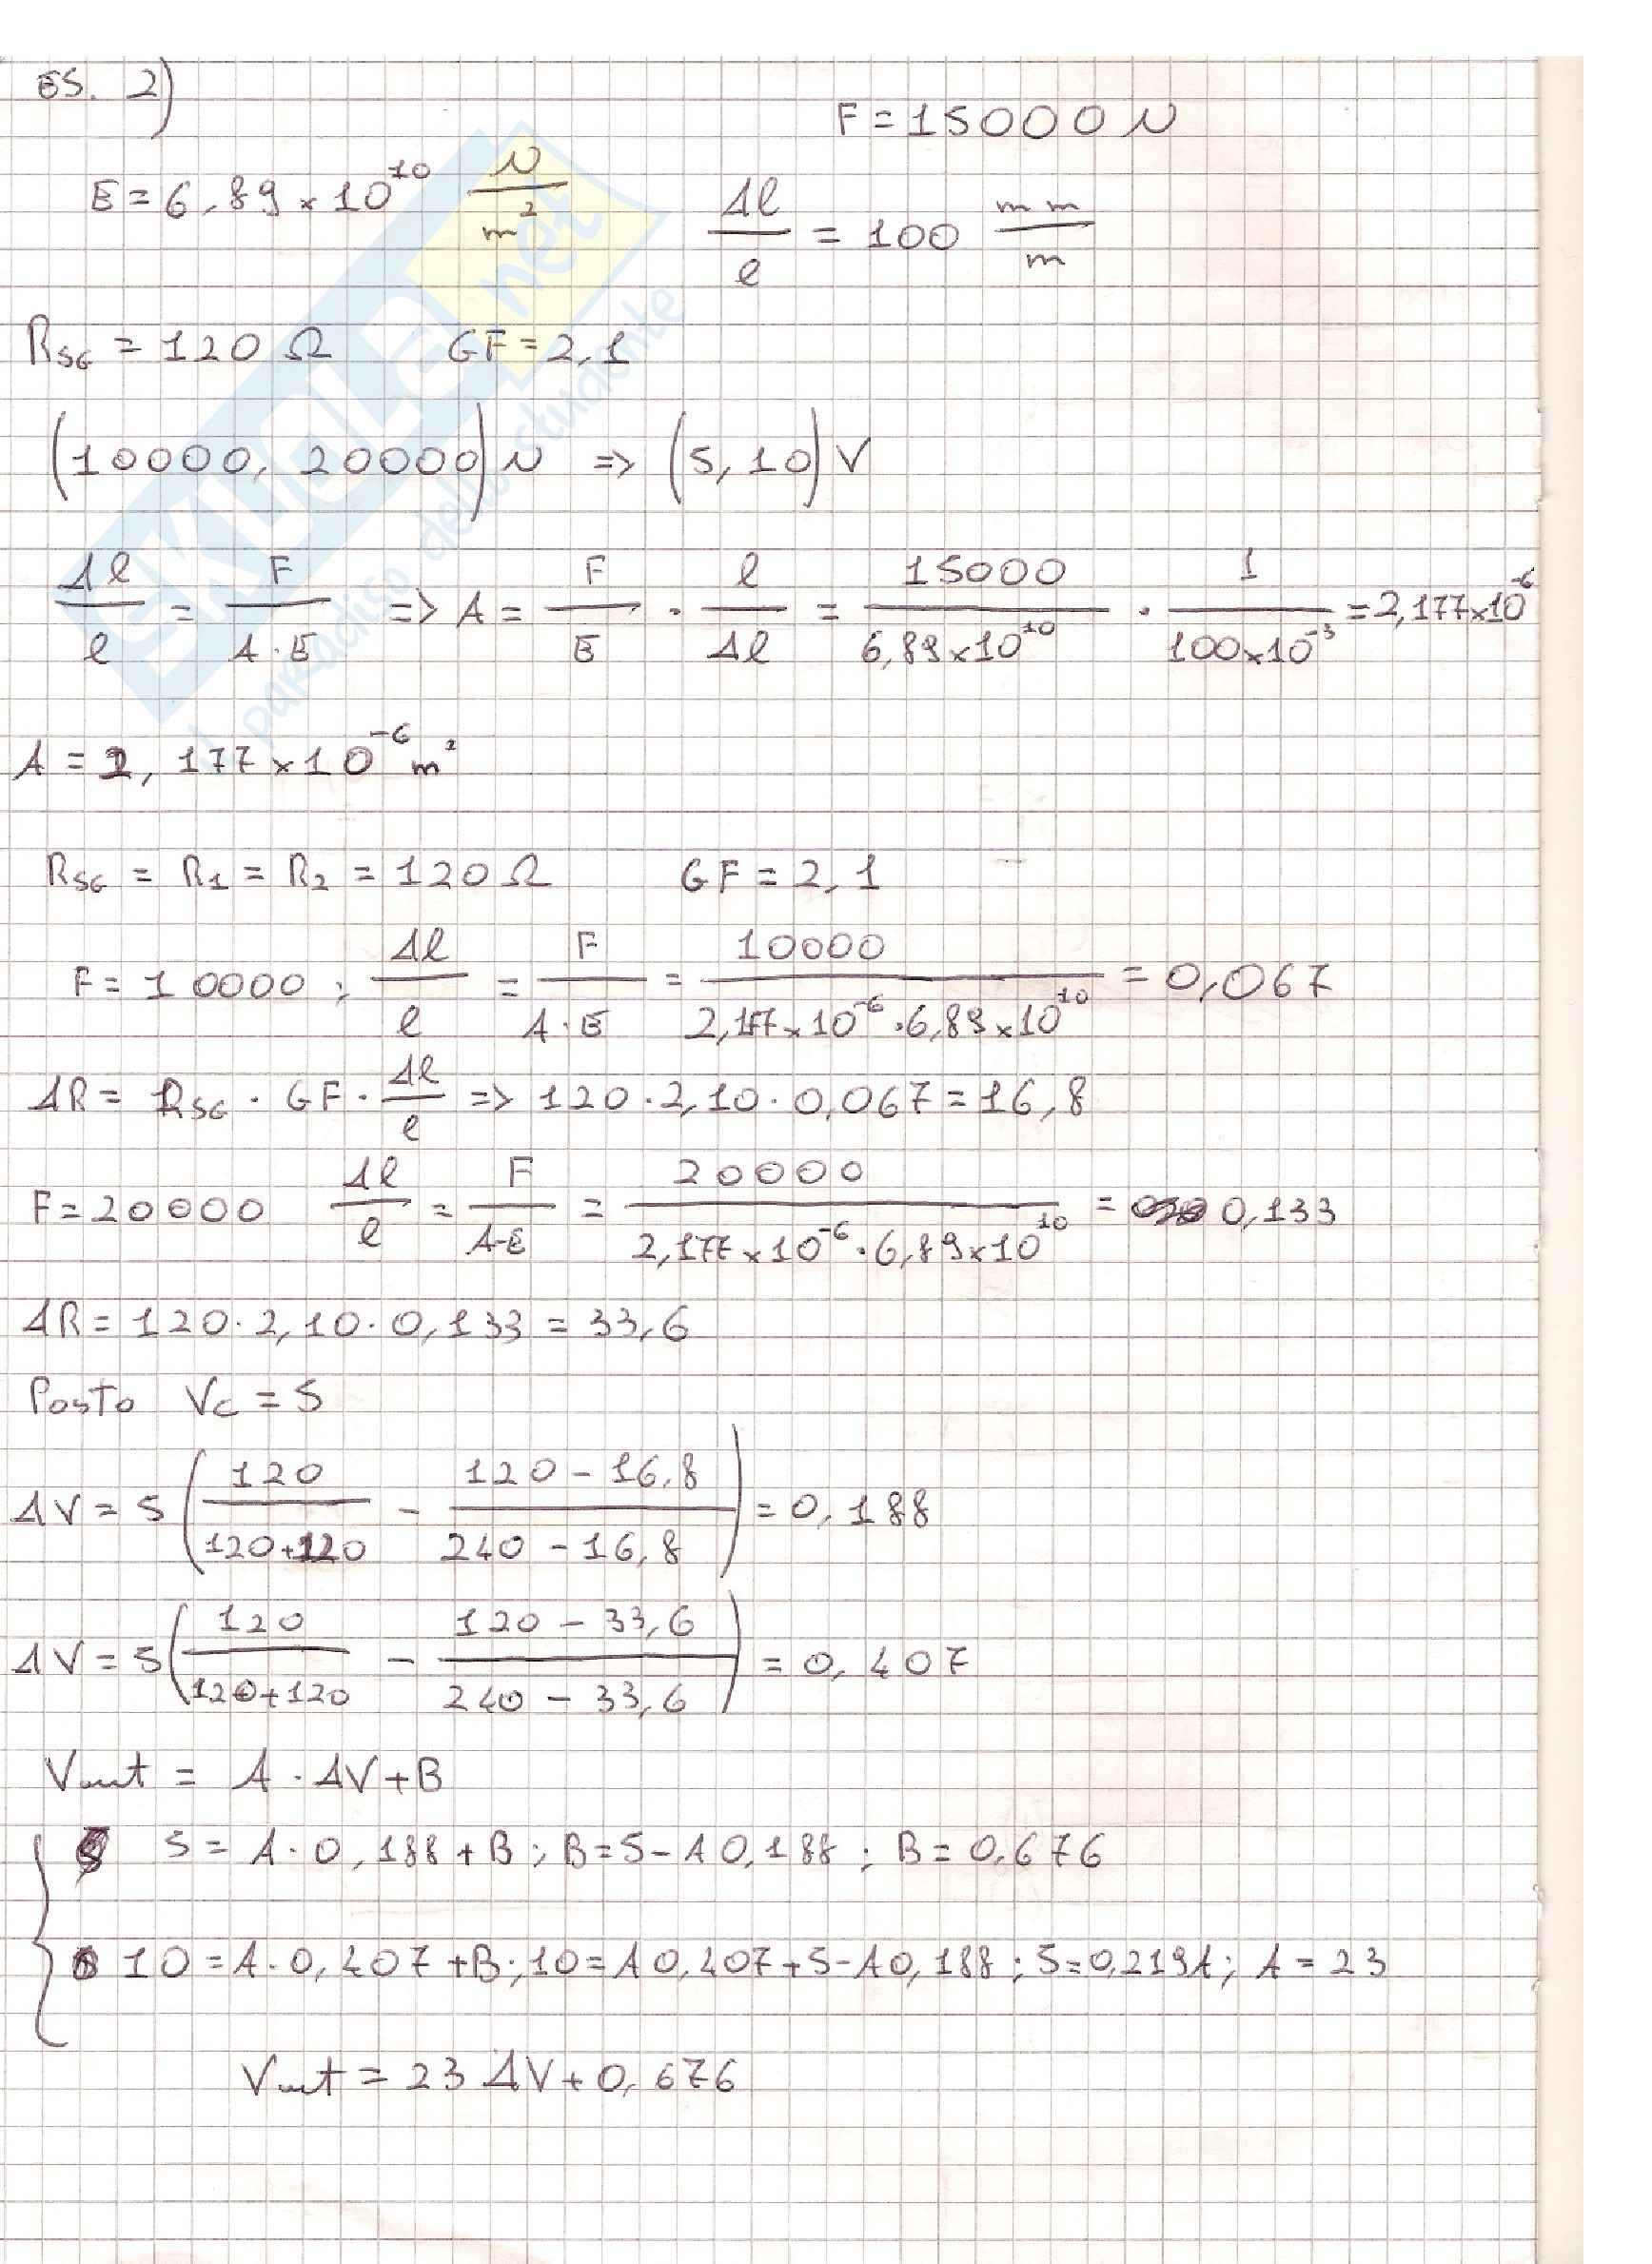 ES. 2)
F = 15000 N
E = 6,89 x 10^10 N/m^2    Δl/l = 100 mm/m
R_SG = 120 Ω    GF = 2,1
(10000, 20000) N => (5, 10) V
Δl/l = F/(A·E) => A = F/E · l/Δl = 15000/(6,89x10^10) · 1/(100x10^-3) = 2,177x10^-6
A = 2,177 x 10^-6 m^2
R_SG = R1 = R2 = 120 Ω    GF = 2,1
F = 10000 ; Δl/l = F/(A·E) = 10000/(2,177x10^-6 · 6,89x10^10) = 0,067
ΔR = R_SG · GF · Δl/l => 120 · 2,10 · 0,067 = 16,8
F = 20000    Δl/l = F/(A·E) = 20000/(2,177x10^-6 · 6,89x10^10) = 0,133
ΔR = 120 · 2,10 · 0,133 = 33,6
Posto Vc = 5
ΔV = 5 (120/(120+120) - (120 - 16,8)/(240 - 16,8)) = 0,188
ΔV = 5 (120/(120+120) - (120 - 33,6)/(240 - 33,6)) = 0,407
Vout = A · ΔV + B
5 = A · 0,188 + B ; B = 5 - A 0,188 ; B = 0,676
10 = A · 0,407 + B ; 10 = A 0,407 + 5 - A 0,188 ; 5 = 0,219A ; A = 23
Vout = 23 ΔV + 0,676
SKUOLA.net
il paradiso dello studente